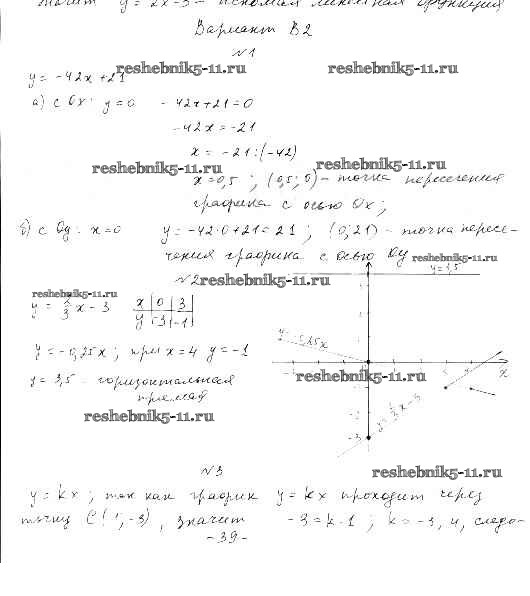 значит y = 2x - 3 - искомая линейная функция
Вариант В2
№1
reshebnik5-11.ru reshebnik5-11.ru
y = -42x + 21
а) с Ox: y = 0 -42x+21=0
-42x = -21
x = -21:(-42)
reshebnik5-11.ru reshebnik5-11.ru
x = 0,5 ; (0,5; 0) - точка пересечения
графика с осью Ox;
б) с Oy: x = 0 y = -42·0+21=21 ; (0;21) - точка пересе-
чения графика с осью Oy reshebnik5-11.ru
№2 reshebnik5-11.ru y=3,5
reshebnik5-11.ru
x | 0 | 3
y | -3 | -1
y = -0,25x ; при x = 4 y = -1
y = -0,25x
y = 3,5 - горизонтальная
прямая
reshebnik5-11.ru
x
reshebnik5-11.ru
-3
№3 reshebnik5-11.ru
y = kx ; так как график y = kx проходит через
точку C (1; -3), значит -3 = k·1 ; k = -3, и, следо-
-39-